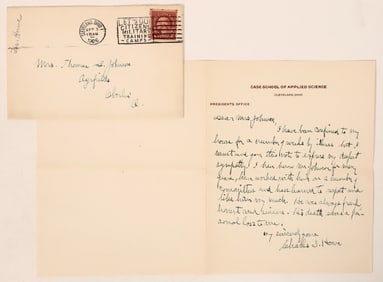 CLEVELAND, OHIO
APR 3
1926
LET'S GO!
CITIZENS
MILITARY
TRAINING
CAMPS
Mrs. Thomas S. Johnson
Oberlin
O.
CASE SCHOOL OF APPLIED SCIENCE
CLEVELAND, OHIO
PRESIDENTS OFFICE
Dear Mrs. Johnson,
I have been confined to my
house for a number of weeks by illness but I
cannot send you this note to express my deepest
sympathy. I have known Mr. Johnson for many
years, have worked with him in a number of
committees and have learned to respect and
like him very much. He was always frank
honest and sincere. His death is a per-
sonal loss to me.
Very sincerely yours
Charles S. Howe